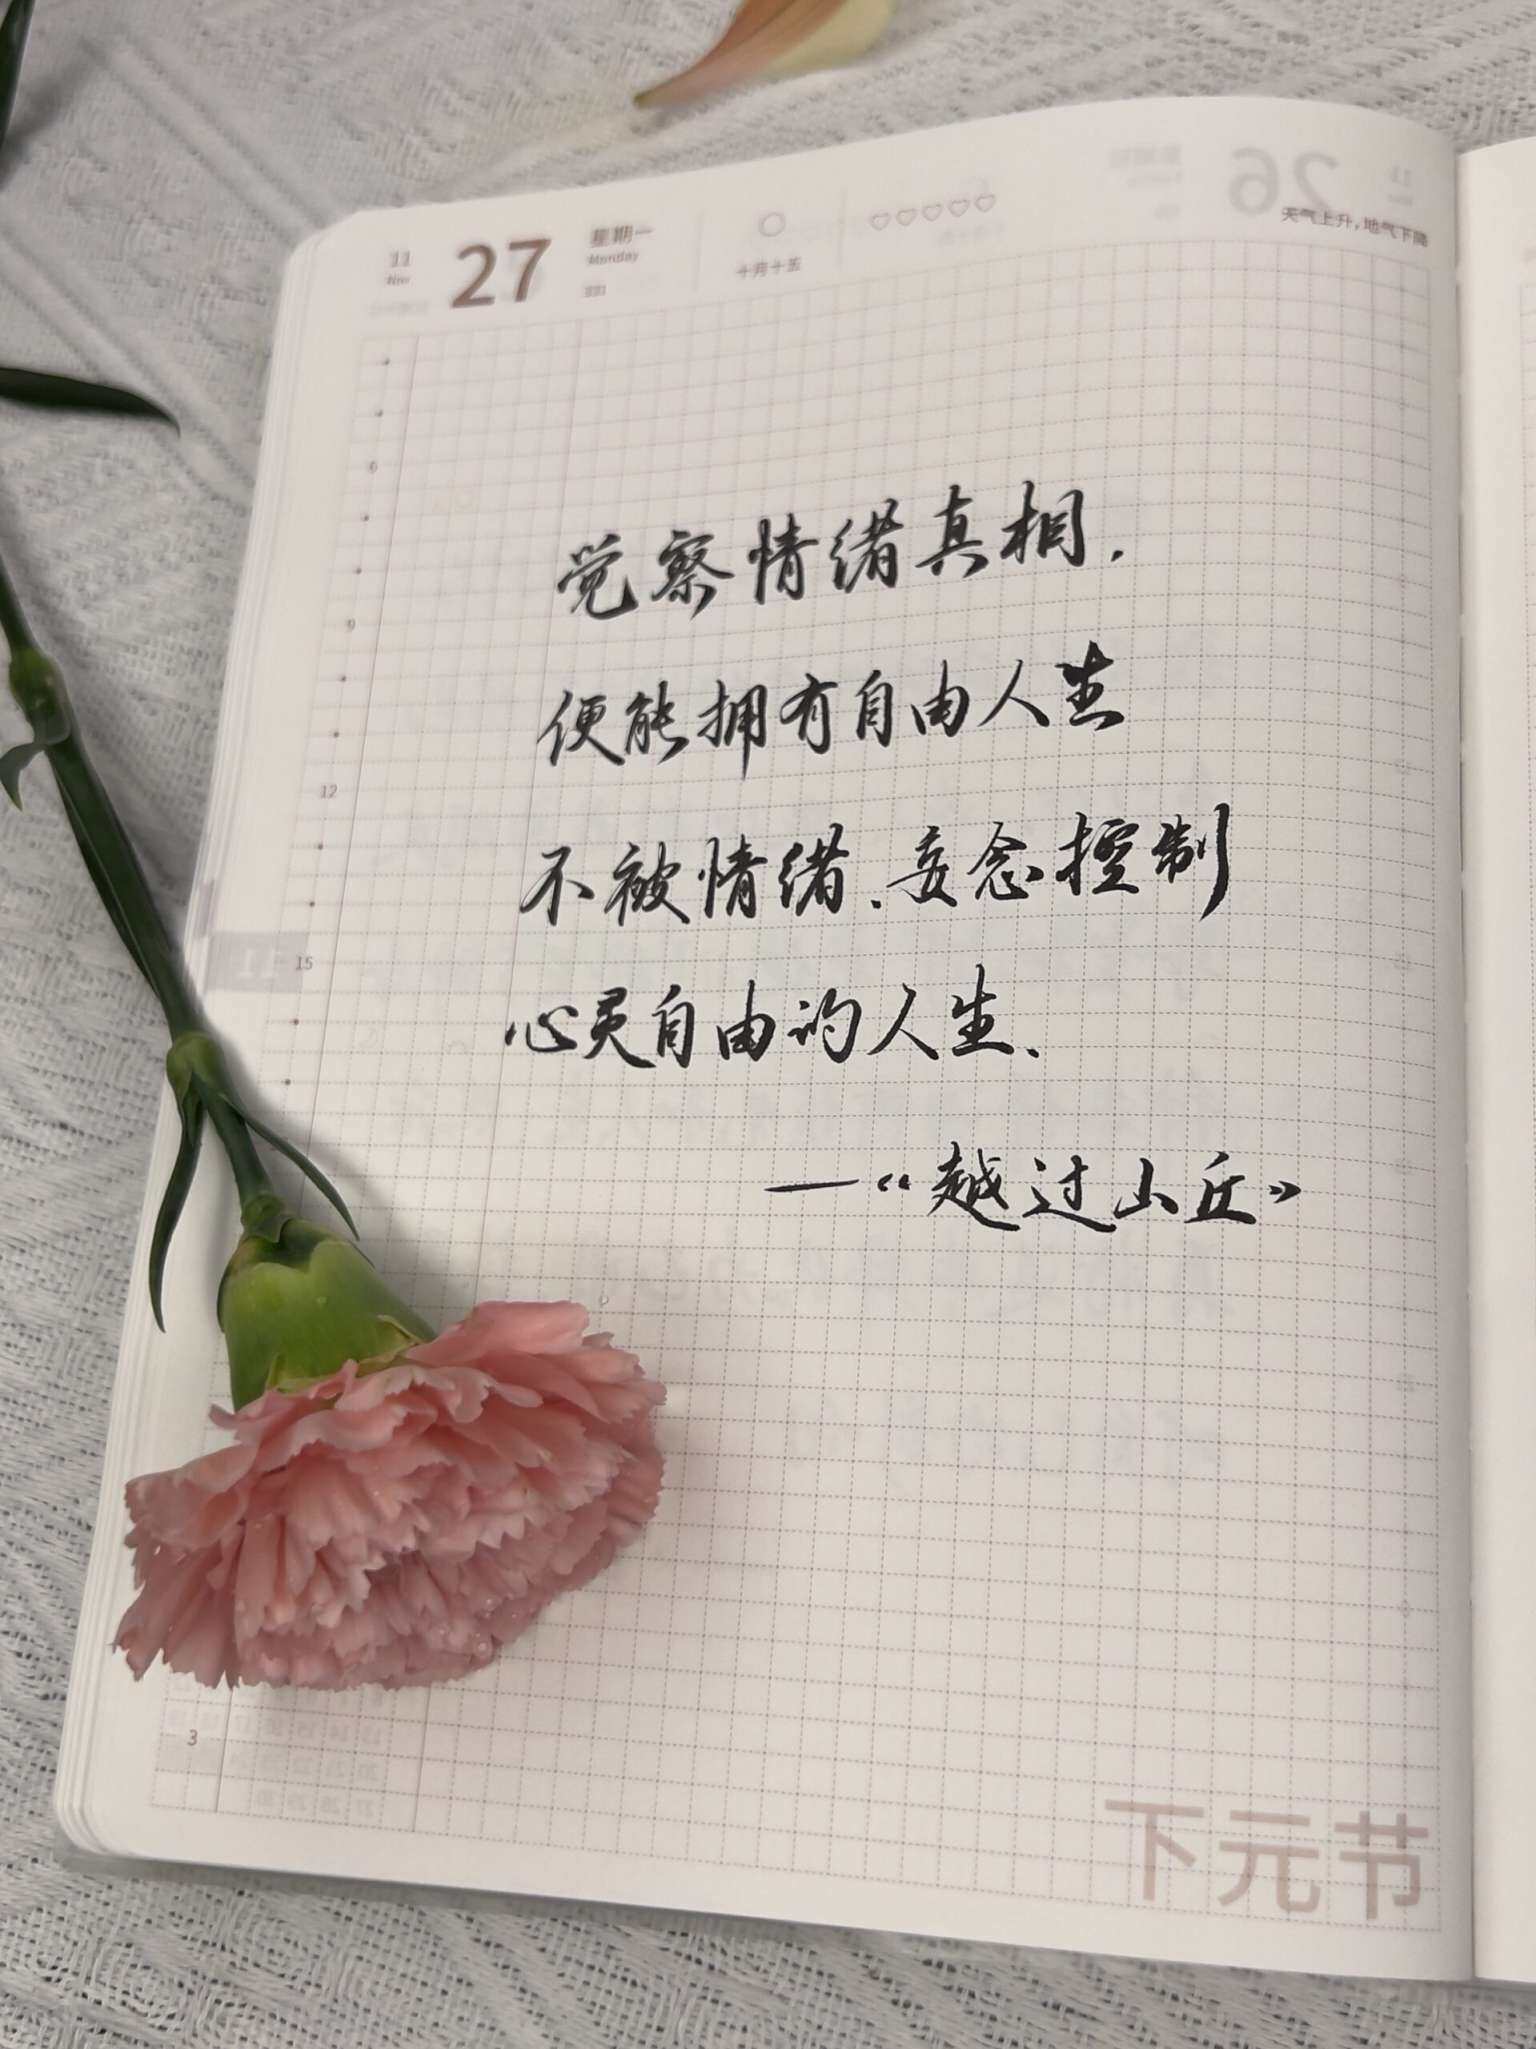 11
Nov
27
星期一
Monday
331
十月十五
天气上升，地气下降
6
9
12
15
觉察情绪真相.
便能拥有自由人生
不被情绪、妄念控制
心灵自由的人生.
——《越过山丘》
3
下元节